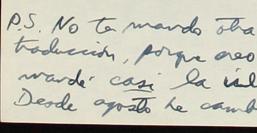 P.S. No te mando otra
traducción, porque creo
mandé casi la
Desde agosto he camb